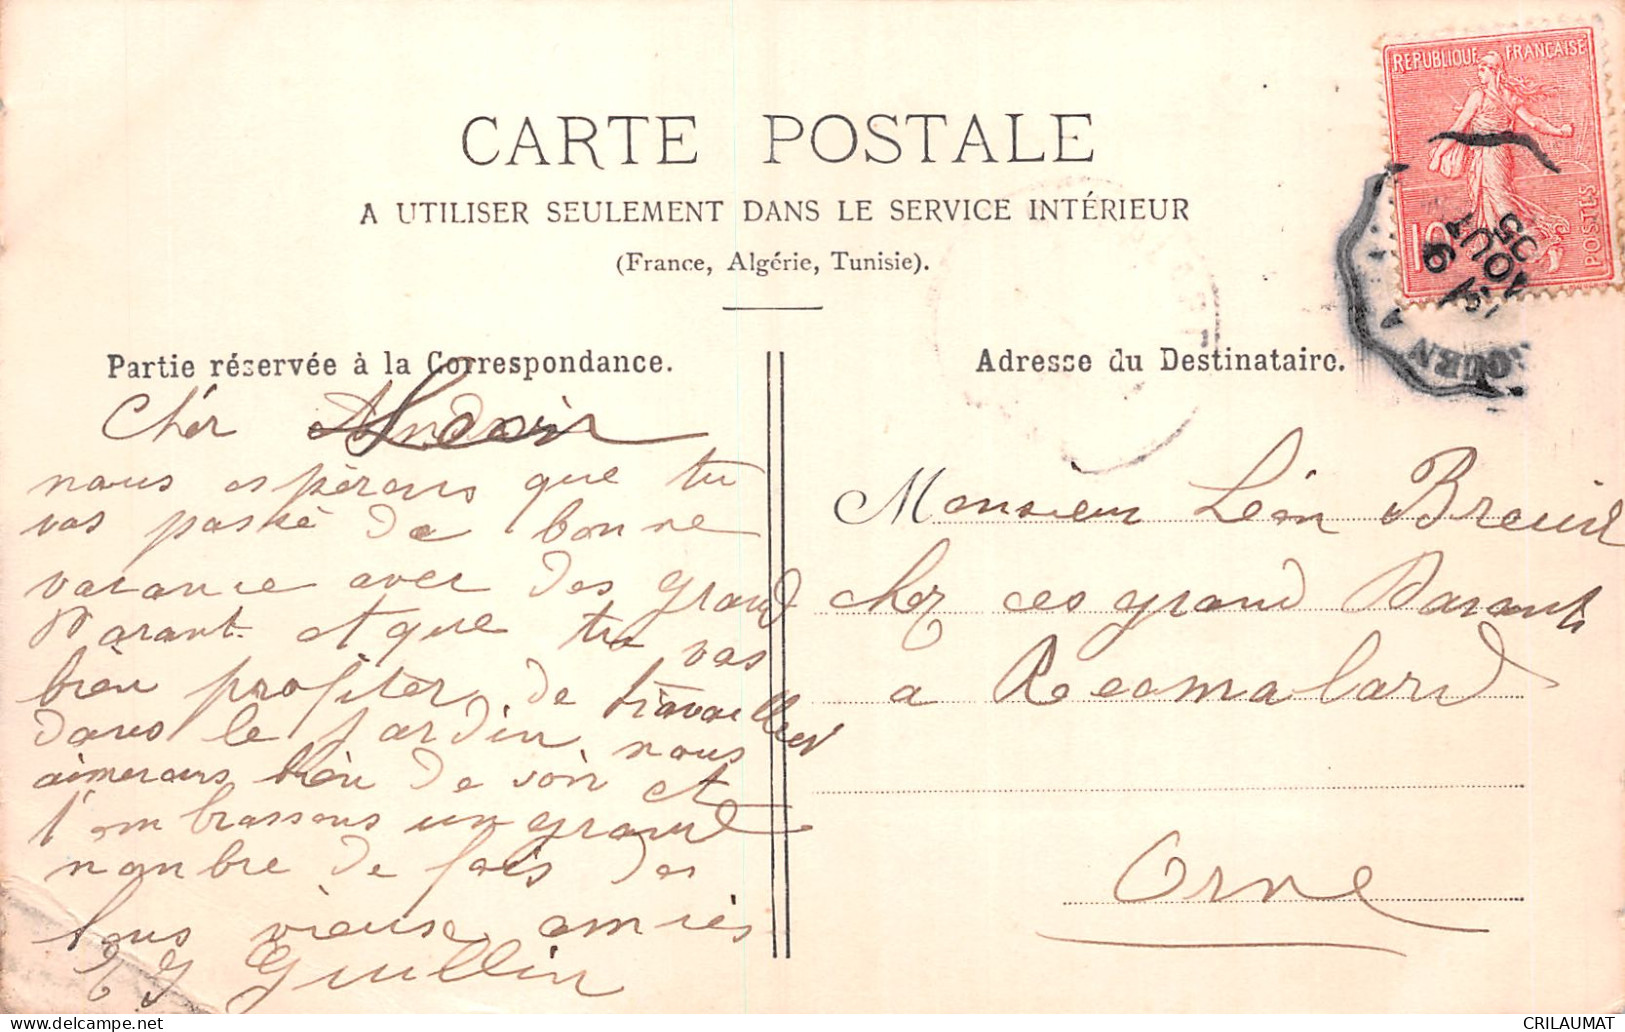 CARTE POSTALE
A UTILISER SEULEMENT DANS LE SERVICE INTÉRIEUR
(France, Algérie, Tunisie).
REPUBLIQUE FRANÇAISE
10
POSTES
AOUT
05
Partie réservée à la Correspondance.
Chér
nous espérons que tu
vas passé de bonne
vacance avec des grand
Parant et que tu vas
bièn profiter de travailler
dans le jardin nous
aimerons bièn de voir et
t'embrassons un grand
nonbre de fois des
tous vieuse amiés
Guillin
Adresse du Destinataire.
Monsieur Léon Breuil
chez ces grand Parants
a Reomalard
Orne
CRILAUMAT